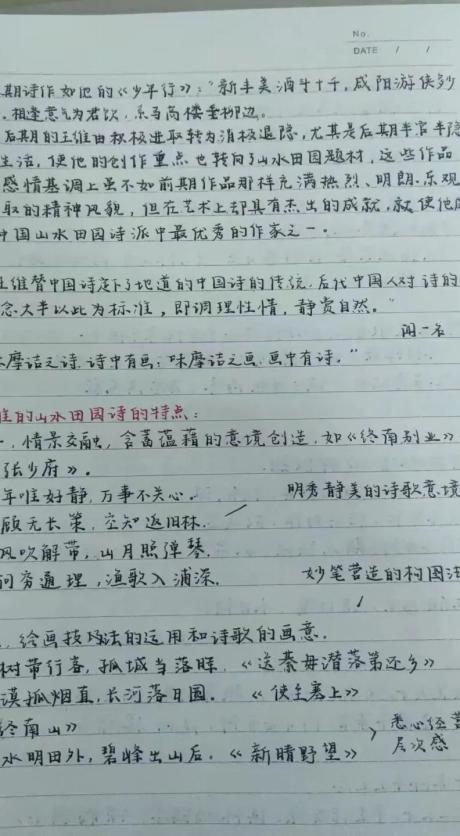 No.
DATE / /
期诗作如他的《少年行》:"新丰美酒斗十千,咸阳游侠多少
,相逢意气为君饮,系马高楼垂柳边。
后期的王维由积极进取转为消极退隐,尤其是后期半官半隐
生活,使他的创作重点也转向了山水田园题材,这些作品
感情基调上虽不如前期作品那样充满热烈、明朗、乐观
取的精神风貌,但在艺术上却具有杰出的成就,就使他成
中国山水田园诗派中最优秀的作家之一。
王维替中国诗定下了地道的中国诗的传统,后代中国人对诗的
念大半以此为标准,即调理性情,静赏自然。"
闻一多
摩诘之诗,诗中有画;味摩诘之画,画中有诗。"
维的山水田园诗的特点:
一,情景交融,含蓄蕴藉的意境创造,如《终南别业》
张少府》。
年唯好静,万事不关心。 明秀静美的诗歌意境
顾无长策,空知返旧林.
风吹解带,山月照弹琴.
问穷通理,渔歌入浦深. 妙笔营造的构图法
、绘画技法的运用和诗歌的画意.
树带行客,孤城当落晖.《送綦毋潜落第还乡》
漠孤烟直,长河落日圆. 《使至塞上》
终南山》
水明田外,碧峰出山后,《新晴野望》 悉心经营
层次感